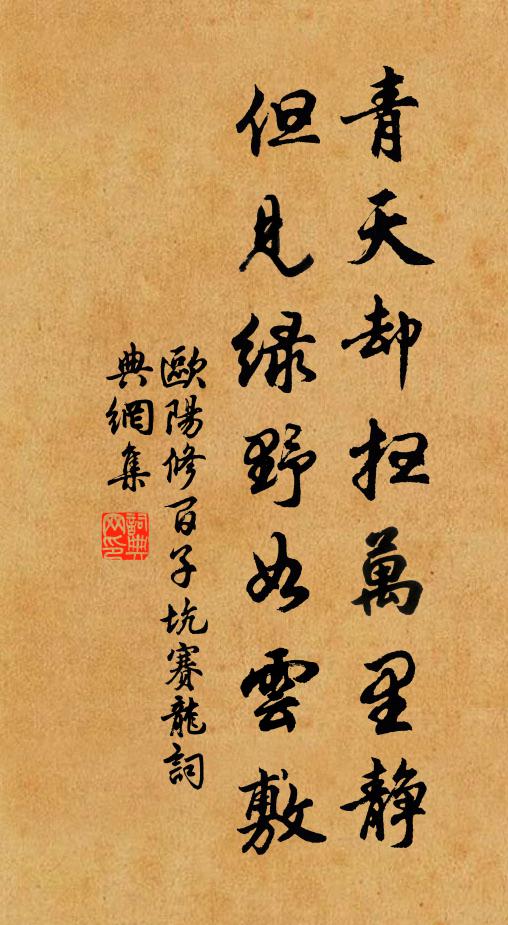 青天却扫萬里静
但見緑野如雲敷
歐陽修百子坑賽龍詞
典網集
詞典网印